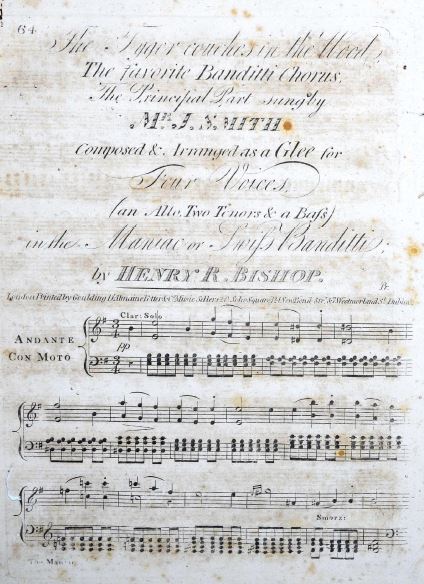 64
The Tyger couches in the Wood,
The favorite Banditti Chorus,
The Principal Part sung by
Mr. J. SMITH
Composed & Arranged as a Glee for
Four Voices,
(an Alto, Two Tenors & a Bass)
in the Maniac or Swiss Banditti;
by HENRY R. BISHOP.
Pr.
London Printed by Goulding D'Almaine Potter & Co. Music Sellers 20 Soho Square & 7 Westmorland St. Dublin.
Clar: Solo
ANDANTE
CON MOTO
pp
Smorz:
The Maniac